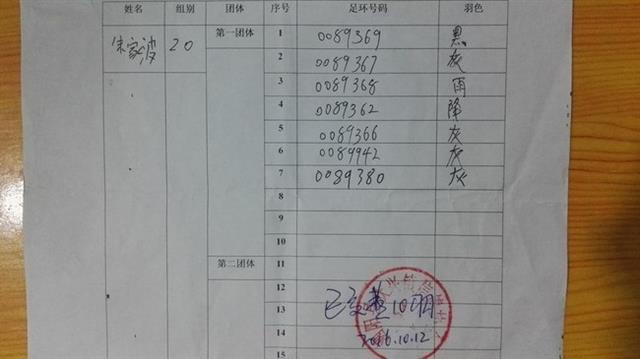 姓名 组别 团体 序号 足环号码 羽色
宋家波 20 第一团体 1 0089369 黑
2 0089367 灰
3 0089368 雨
4 0089362 降
5 0089366 灰
6 0089942 灰
7 0089380 灰
8
9
10
第二团体 11
12
13 已交 10羽
14 2016.10.12
15